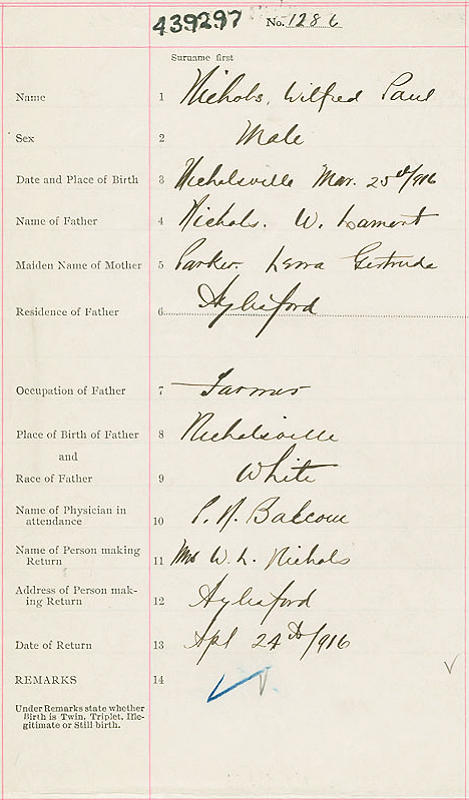 439297 No. 1286
Surname first
Name 1 Nichols, Wilfred Paul
Sex 2 Male
Date and Place of Birth 3 Nicholsville Mar. 25th/916
Name of Father 4 Nichols. W. Lamont
Maiden Name of Mother 5 Parker. Gertrude
Residence of Father 6 Aylesford
Occupation of Father 7 Farmer
Place of Birth of Father 8 Nicholsville
and
Race of Father 9 White
Name of Physician in
attendance 10 P. N. Balcom
Name of Person making
Return 11 Mrs W. L. Nichols
Address of Person mak-
ing Return 12 Aylesford
Date of Return 13 Apl 24th/916
REMARKS 14
Under Remarks state whether
Birth is Twin, Triplet, Ille-
gitimate or Still birth.